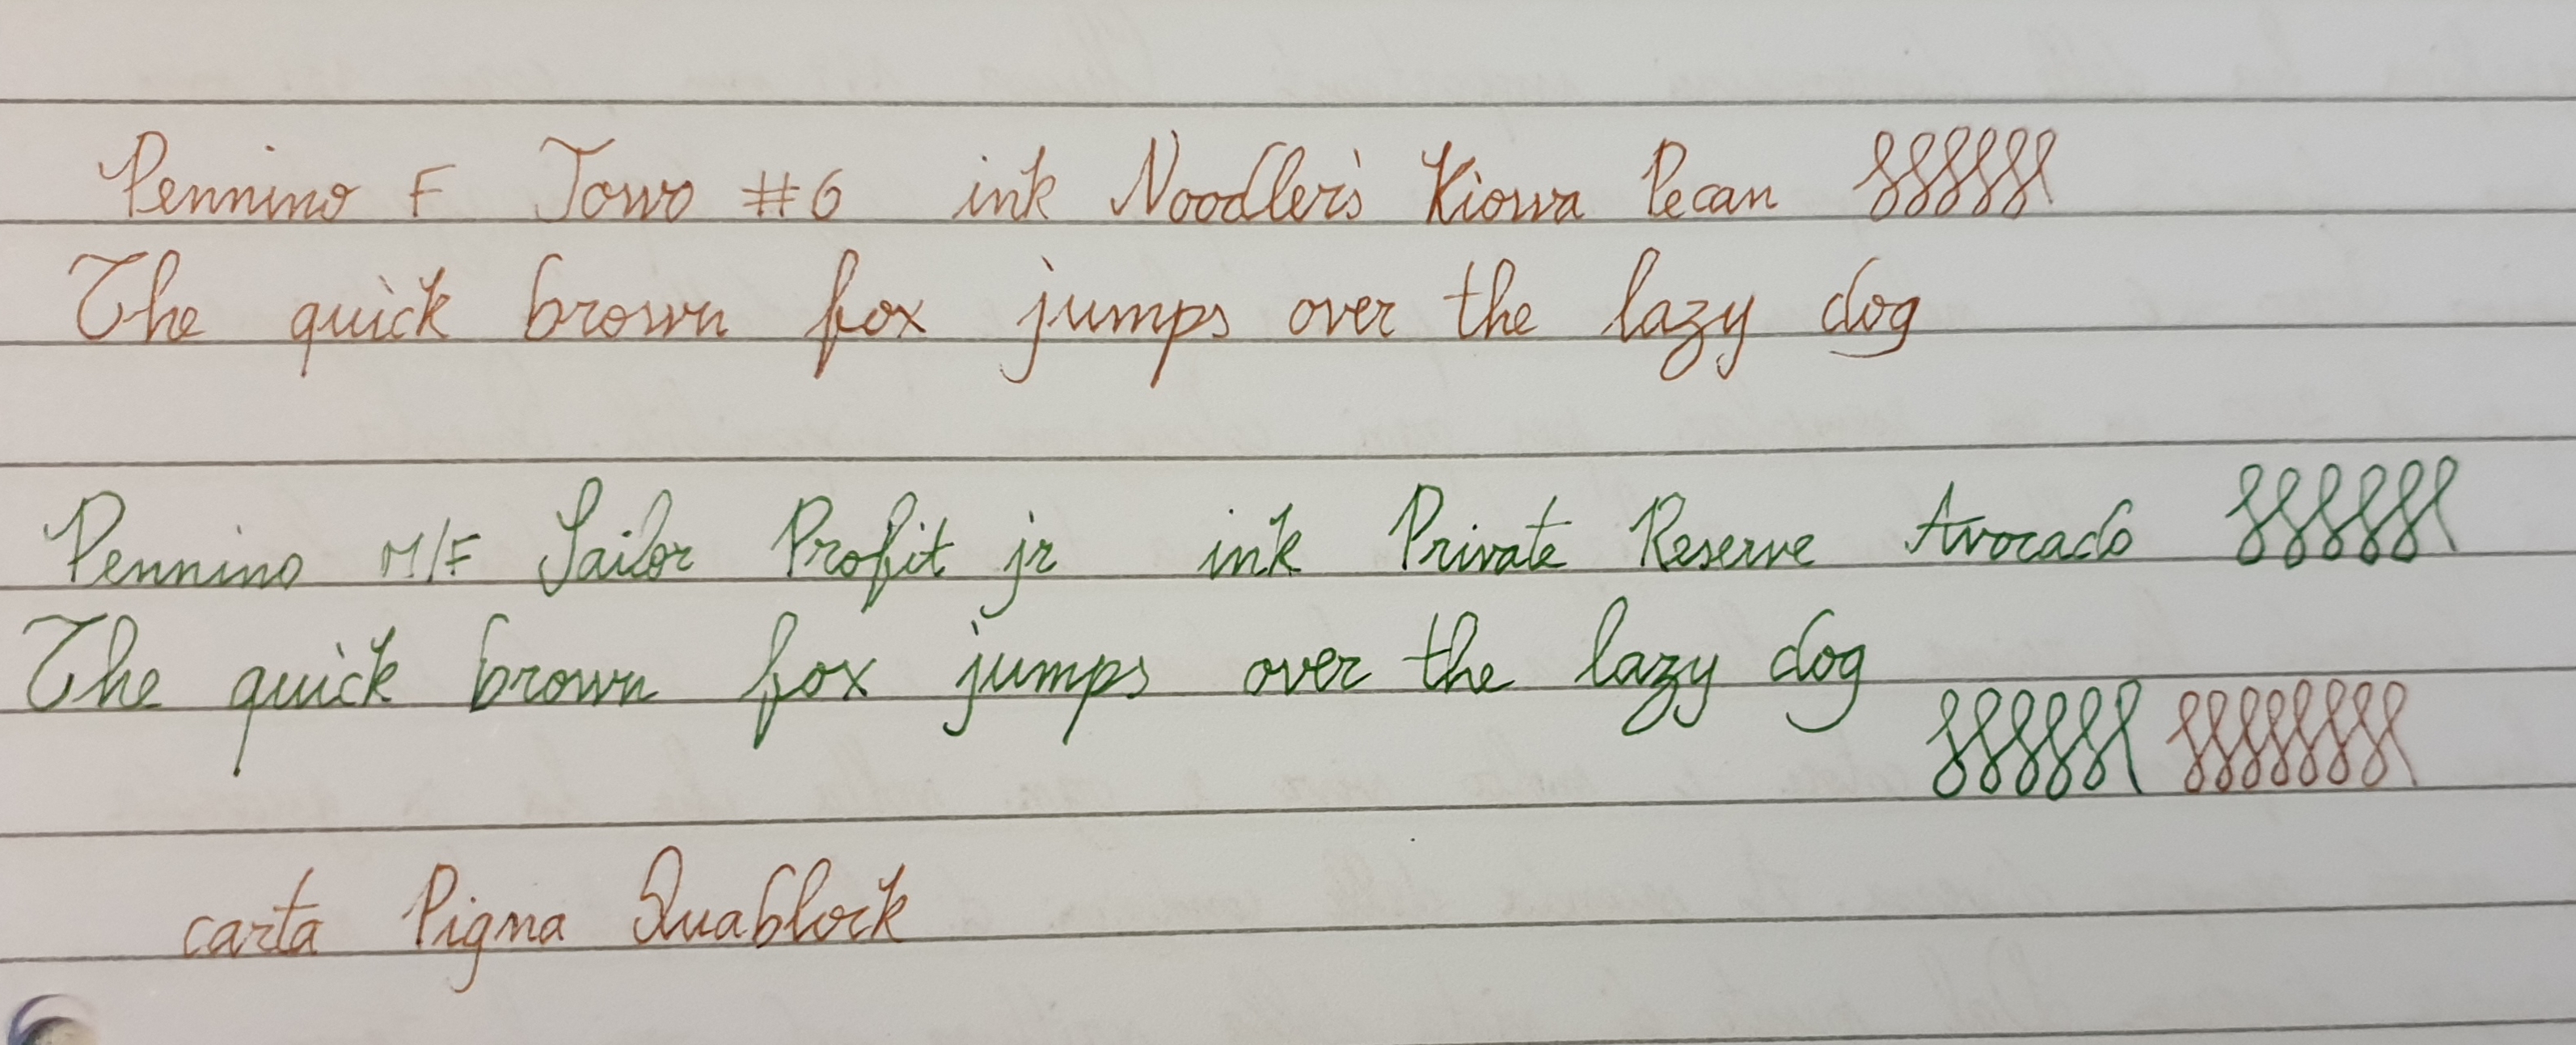 Pennino F Jowo #6 ink Noodler's Kiowa Pecan
The quick brown fox jumps over the lazy dog
Pennino M/F Sailor Profit jr ink Private Reserve Avocado
The quick brown fox jumps over the lazy dog
carta Pigna Quablock